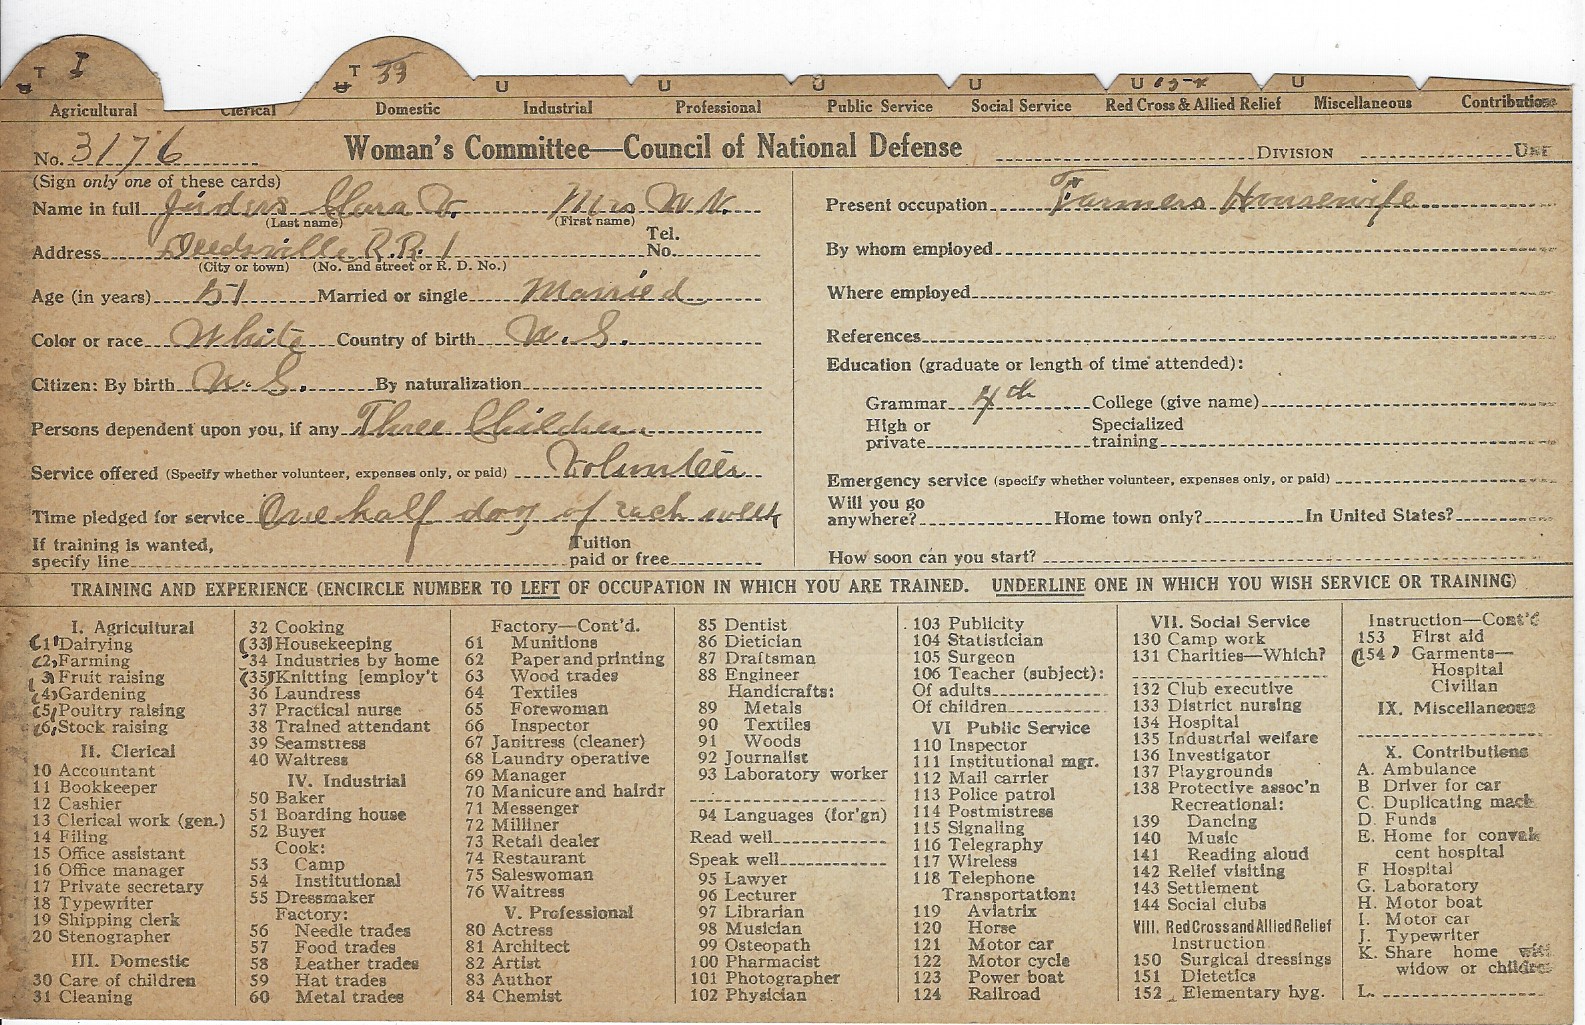 T I T 35 U U U U U 154 U
Agricultural Clerical Domestic Industrial Professional Public Service Social Service Red Cross & Allied Relief Miscellaneous Contributions
No. 3176 Woman's Committee—Council of National Defense DIVISION UNIT
(Sign only one of these cards)
Name in full Clara V. Mrs W. N.
(Last name) (First name)
Address Deedsville R.R. 1 Tel. No.
(City or town) (No. and street or R. D. No.)
Age (in years) 51 Married or single Married
Color or race White Country of birth U. S.
Citizen: By birth U. S. By naturalization
Persons dependent upon you, if any Three Children
Service offered (Specify whether volunteer, expenses only, or paid) Volunteer
Time pledged for service One half day of each week
If training is wanted, specify line Tuition paid or free
Present occupation Farmers Housewife
By whom employed
Where employed
References
Education (graduate or length of time attended):
Grammar 4th College (give name)
High or private Specialized training
Emergency service (specify whether volunteer, expenses only, or paid)
Will you go anywhere? Home town only? In United States?
How soon can you start?
TRAINING AND EXPERIENCE (ENCIRCLE NUMBER TO LEFT OF OCCUPATION IN WHICH YOU ARE TRAINED. UNDERLINE ONE IN WHICH YOU WISH SERVICE OR TRAINING)
I. Agricultural
(1) Dairying
(2) Farming
(3) Fruit raising
(4) Gardening
(5) Poultry raising
(6) Stock raising
II. Clerical
10 Accountant
11 Bookkeeper
12 Cashier
13 Clerical work (gen.)
14 Filing
15 Office assistant
16 Office manager
17 Private secretary
18 Typewriter
19 Shipping clerk
20 Stenographer
III. Domestic
30 Care of children
31 Cleaning
32 Cooking
(33) Housekeeping
34 Industries by home
(35) Knitting [employ't
36 Laundress
37 Practical nurse
38 Trained attendant
39 Seamstress
40 Waitress
IV. Industrial
50 Baker
51 Boarding house
52 Buyer
Cook:
53 Camp
54 Institutional
55 Dressmaker
Factory:
56 Needle trades
57 Food trades
58 Leather trades
59 Hat trades
60 Metal trades
Factory—Cont'd.
61 Munitions
62 Paper and printing
63 Wood trades
64 Textiles
65 Forewoman
66 Inspector
67 Janitress (cleaner)
68 Laundry operative
69 Manager
70 Manicure and hairdr
71 Messenger
72 Milliner
73 Retail dealer
74 Restaurant
75 Saleswoman
76 Waitress
V. Professional
80 Actress
81 Architect
82 Artist
83 Author
84 Chemist
85 Dentist
86 Dietician
87 Draftsman
88 Engineer
Handicrafts:
89 Metals
90 Textiles
91 Woods
92 Journalist
93 Laboratory worker
94 Languages (for'gn)
Read well
Speak well
95 Lawyer
96 Lecturer
97 Librarian
98 Musician
99 Osteopath
100 Pharmacist
101 Photographer
102 Physician
103 Publicity
104 Statistician
105 Surgeon
106 Teacher (subject):
Of adults
Of children
VI Public Service
110 Inspector
111 Institutional mgr.
112 Mail carrier
113 Police patrol
114 Postmistress
115 Signaling
116 Telegraphy
117 Wireless
118 Telephone
Transportation:
119 Aviatrix
120 Horse
121 Motor car
122 Motor cycle
123 Power boat
124 Railroad
VII. Social Service
130 Camp work
131 Charities—Which?
132 Club executive
133 District nursing
134 Hospital
135 Industrial welfare
136 Investigator
137 Playgrounds
138 Protective assoc'n
Recreational:
139 Dancing
140 Music
141 Reading aloud
142 Relief visiting
143 Settlement
144 Social clubs
VIII. Red Cross and Allied Relief
Instruction
150 Surgical dressings
151 Dietetics
152 Elementary hyg.
Instruction—Cont'd
153 First aid
(154) Garments—
Hospital
Civilian
IX. Miscellaneous
X. Contributions
A. Ambulance
B Driver for car
C. Duplicating mach
D. Funds
E. Home for convales
cent hospital
F Hospital
G. Laboratory
H. Motor boat
I. Motor car
J. Typewriter
K. Share home with
widow or children
L.